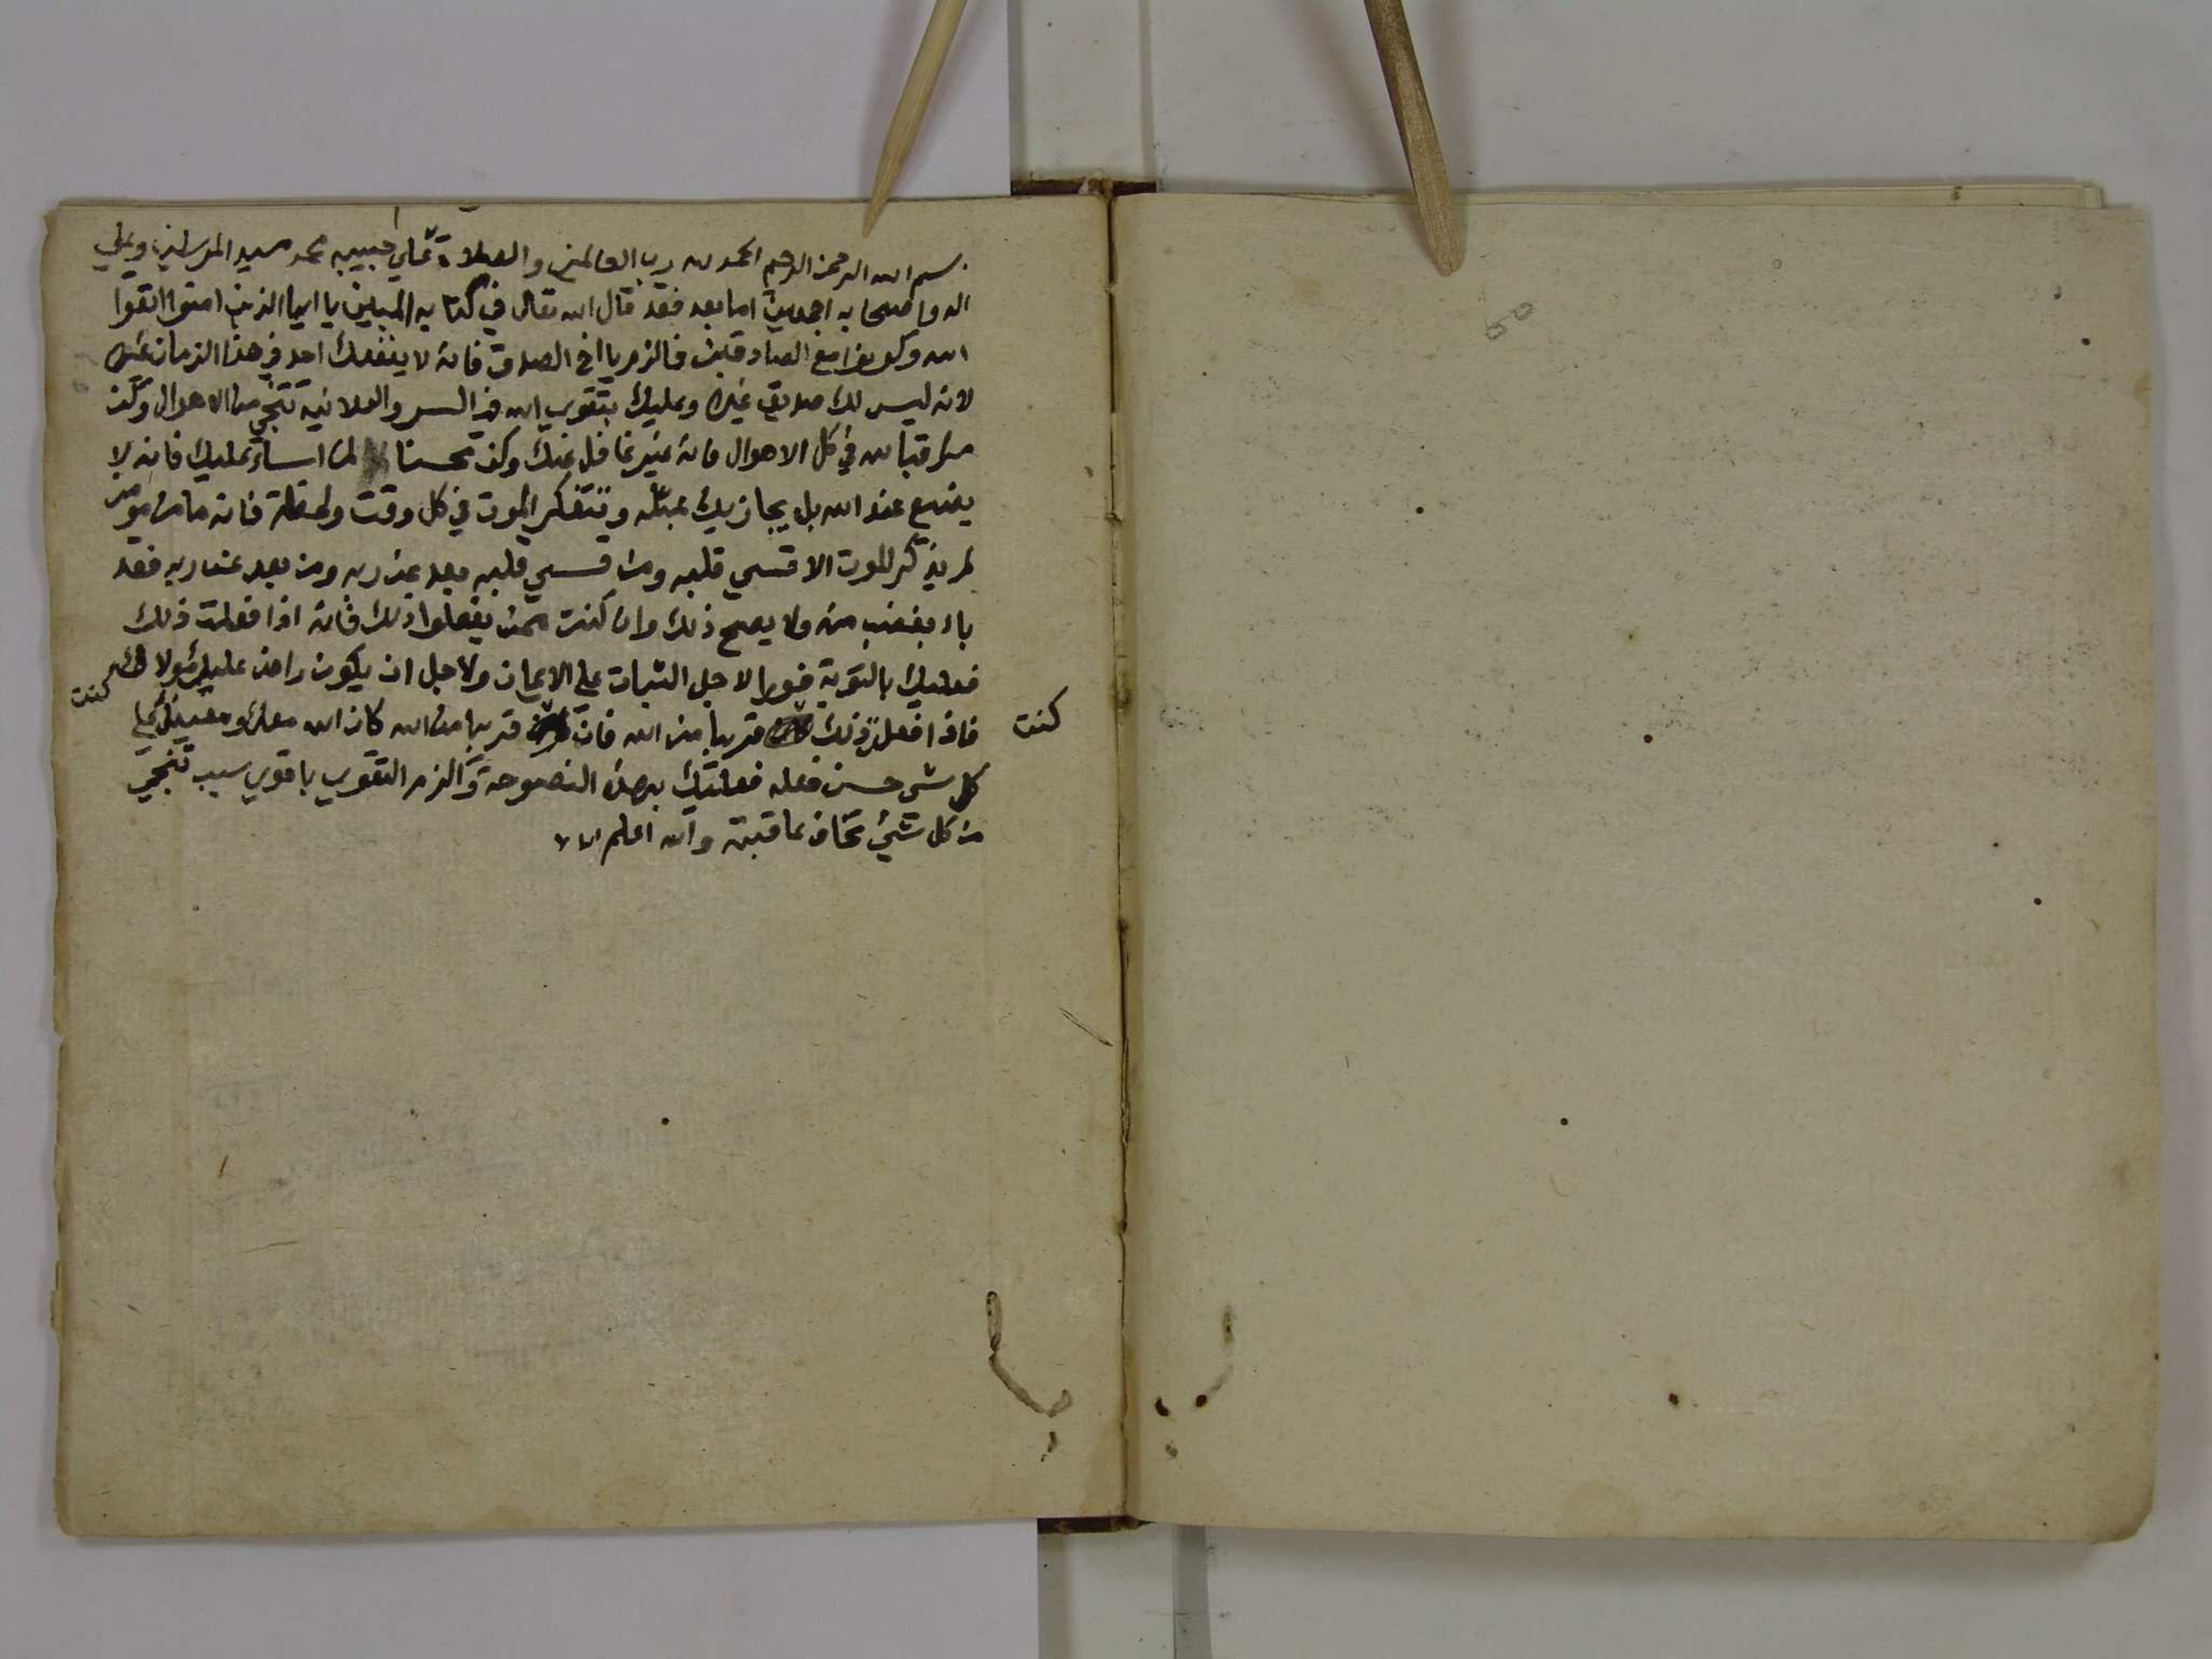 بسم الله الرحمن الرحيم الحمد لله رب العالمين والصلاة على حبيبه محمد سيد المرسلين وعلي
اله واصحابه اجمعين اما بعد فقد قال الله تعالى في كتابه المبين يا ايها الذين امنوا اتقوا
الله وكونوا مع الصادقين فالزم يا اخي الصدق فانه لا ينفعك احد في هذا الزمان غيره
لانه ليس لك صديق غيره وعليك بتقوي الله في السر والعلانية تنجي من الاهوال وكن
مراقبا لله في كل الاهوال فانه غير غافل عنك وكن محسنا لمن اساء عليك فانه لا
يضيع عند الله بل يجازيك بمثله وتتفكر الموت في كل وقت ولحظة فانه ما من مومن
لم يذكر الموت الا قسي قلبه ومن قسي قلبه بعد عن ربه ومن بعد عن ربه فقد
باء بغضب منه ولا يصح ذلك وان كنت ممن يفعلوا ذلك فانه اذا فعلت ذلك
فعليك بالتوبة فورا لاجل الثبات علي الايمان ولاجل ان يكون راض عليك مولاك
فاذا فعلت ذلك كنت قريبا من الله فان كنت قريبا من الله كان الله معك ومعينك علي
كل شي حسن فعله فعليك بهذه النصوحة والزم التقوي باقوي سبب تنجي
من كل شيء تخاف عاقبته والله اعلم
كنت
كنت